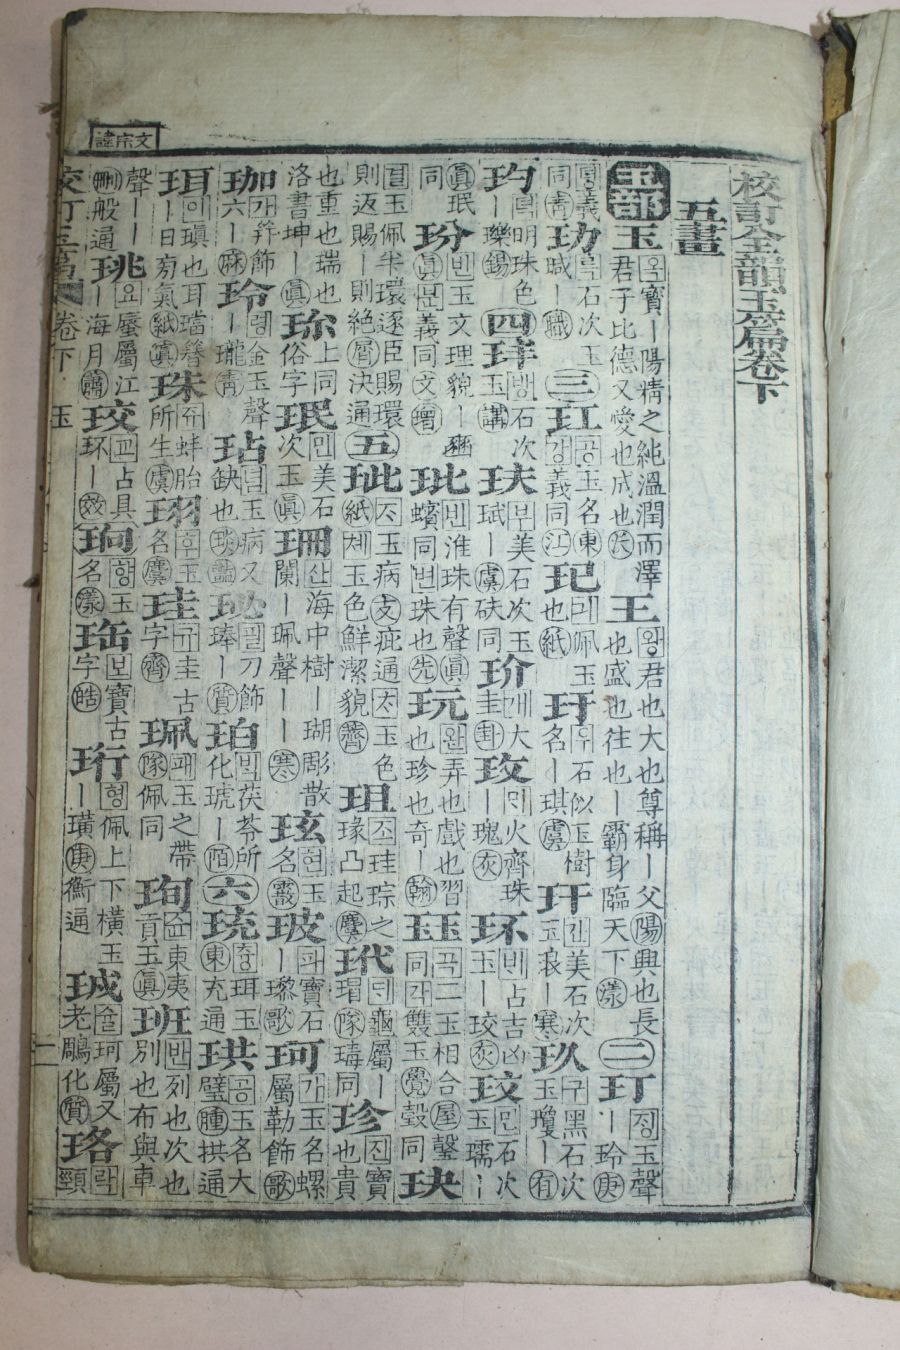 校訂全韻玉篇卷下
五畫
玉部 玉 옥寶ー陽精之純溫潤而澤君子比德又愛也成也沃 王 왕君也大也尊稱ー父陽興也長也盛也往也ー霸身臨天下漾 二 玎 정玉聲ー玲庚
義同靑 玏 륵石次玉ー職 三 玒 공玉名東강義同江 玘 긔佩玉也紙 玗 우石似玉樹名ー琪虞 玕 간美石次玉琅ー寒 玖 구黑石次玉瓊ー有
玓 뎍明珠色ー瓅錫 四 玤 방石次玉講 玞 부美石次玉珷ー虞砆同 玠 개大圭卦 玫 ᄆᆡ火齊珠ー瑰灰 环 ᄇᆡ占吉凶玉ー珓灰 玟 민石次玉瓀ー
眞珉同 玢 빈玉文理貌ー豳眞분義同文璔 玭 빈淮珠有聲眞蠙同변珠也先 玩 완弄也戱也習也珍也奇ー翰 玨 곡二玉相合屋瑴同각雙玉覺瑴同 玦
결玉佩半環逐臣賜環則返賜ー則絶屑決通 五 玼 ᄌᆞ玉病支疵通ᄌᆞ玉色紙체玉色鮮潔貌薺 珇 조珪琮之瑑凸起麌 玳 ᄃᆡ龜屬ー瑁隊瑇同 珍 진寶也貴
也重也瑞也洛書坤ー眞 珎 上同俗字 珉 민美石次玉眞 珊 산海中樹ー瑚彫散闌ー珮聲ーー寒 玹 현玉名霰 玻 파寶石ー瓈歌 珂 가玉名螺屬勒飾歌
珈 가笄飾六ー麻 玲 령金玉聲ー瓏靑 玷 뎜玉病又缺也琰豔 珌 필刀飾琫ー質 珀 박茯苓所化琥ー陌 六 珫 충珥玉東充通 珙 공玉名大璧腫拱通
珥 이瑱也耳璫簪ー日旁氣紙寘 珠 쥬蚌胎所生虞 珝 후玉名麌 珪 규圭古字齊 珮 패玉之帶隊佩同 珣 슌東夷貢玉眞 班 반列也次也別也布與車
聲ーー刪般通 珧 요蜃屬江ー海月蕭 珓 교占具环ー效 珦 향玉名漾 珤 보寶古字皓 珩 형佩上下橫玉ー璜庚衡通 珬 슐珂屬又老鵰化質 珞 락頸
文宗諱
校訂玉篇 卷下 玉 一